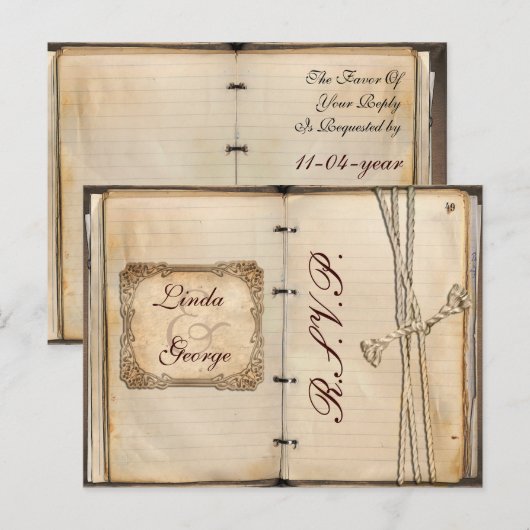 The Favor Of
Your Reply
Is Requested by
11-04-year
49
Linda
&
George
R.S.V.P.